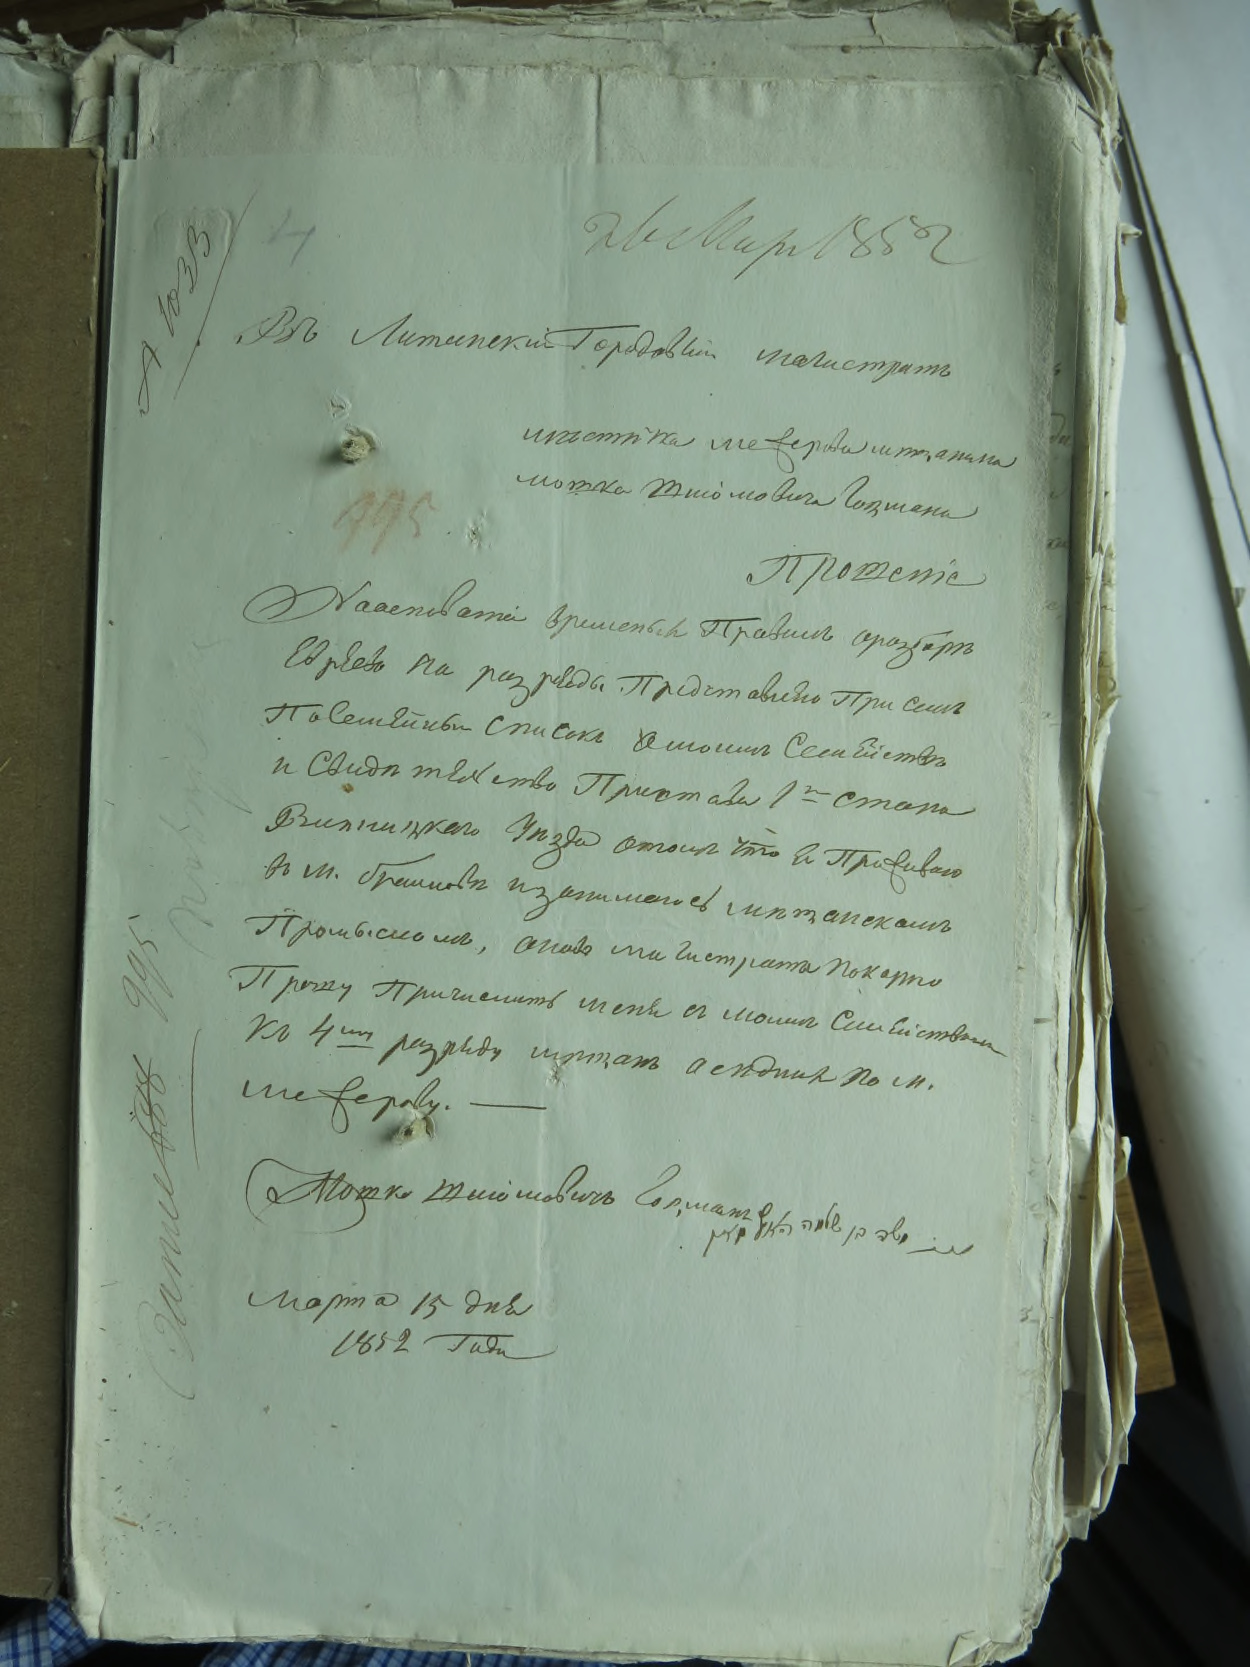 26 Мар 1852
№ 1033
4
Въ Литинскій Городовый магистратъ
мѣстечка межерова мѣщанина
мошка Шліомовича Гоцмана
995
Прошеніе
Наосновати временыхъ Правилъ оразборѣ
Евреевъ на разряды Представлено При семъ
Посемейный списокъ омоимъ Семействѣ
и Свидѣтельство Пристава 1го стана
Винницкаго Уѣзда отомъ что я Проживаю
въ м. браиловѣ изанимаюсь мѣщанскимъ
Промысломъ, магистратъ покорно
Прошу Причислить меня съ моимъ Семействомъ
Къ 4му разряду мѣщанъ осѣдлыхъ по м.
межерову.
Мошко Шліомовичъ Гоцманъ
משה בן שלמה
марта 15 дня
1852 Года
995